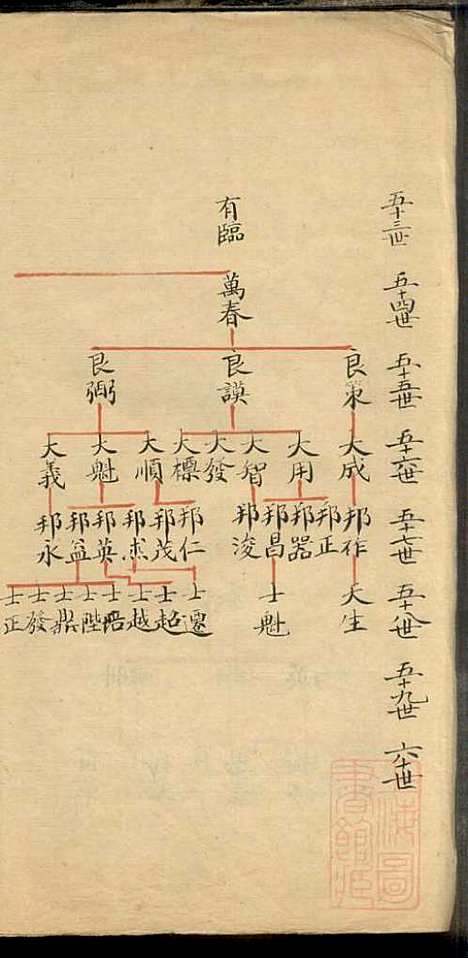 五十三世 五十四世 五十五世 五十六世 五十七世 五十八世 五十九世 六十世
有臨
萬春
良策 良謨 良弼
大成 大用 大智 大發 大標 大順 大魁 大義
邦作 邦正 邦器 邦昌 邦浚 邦仁 邦茂 邦 邦英 邦益 邦永
天生 士魁 士遷 士超 士越 士 士陛 士鼎 士發 士正
海圖
書館